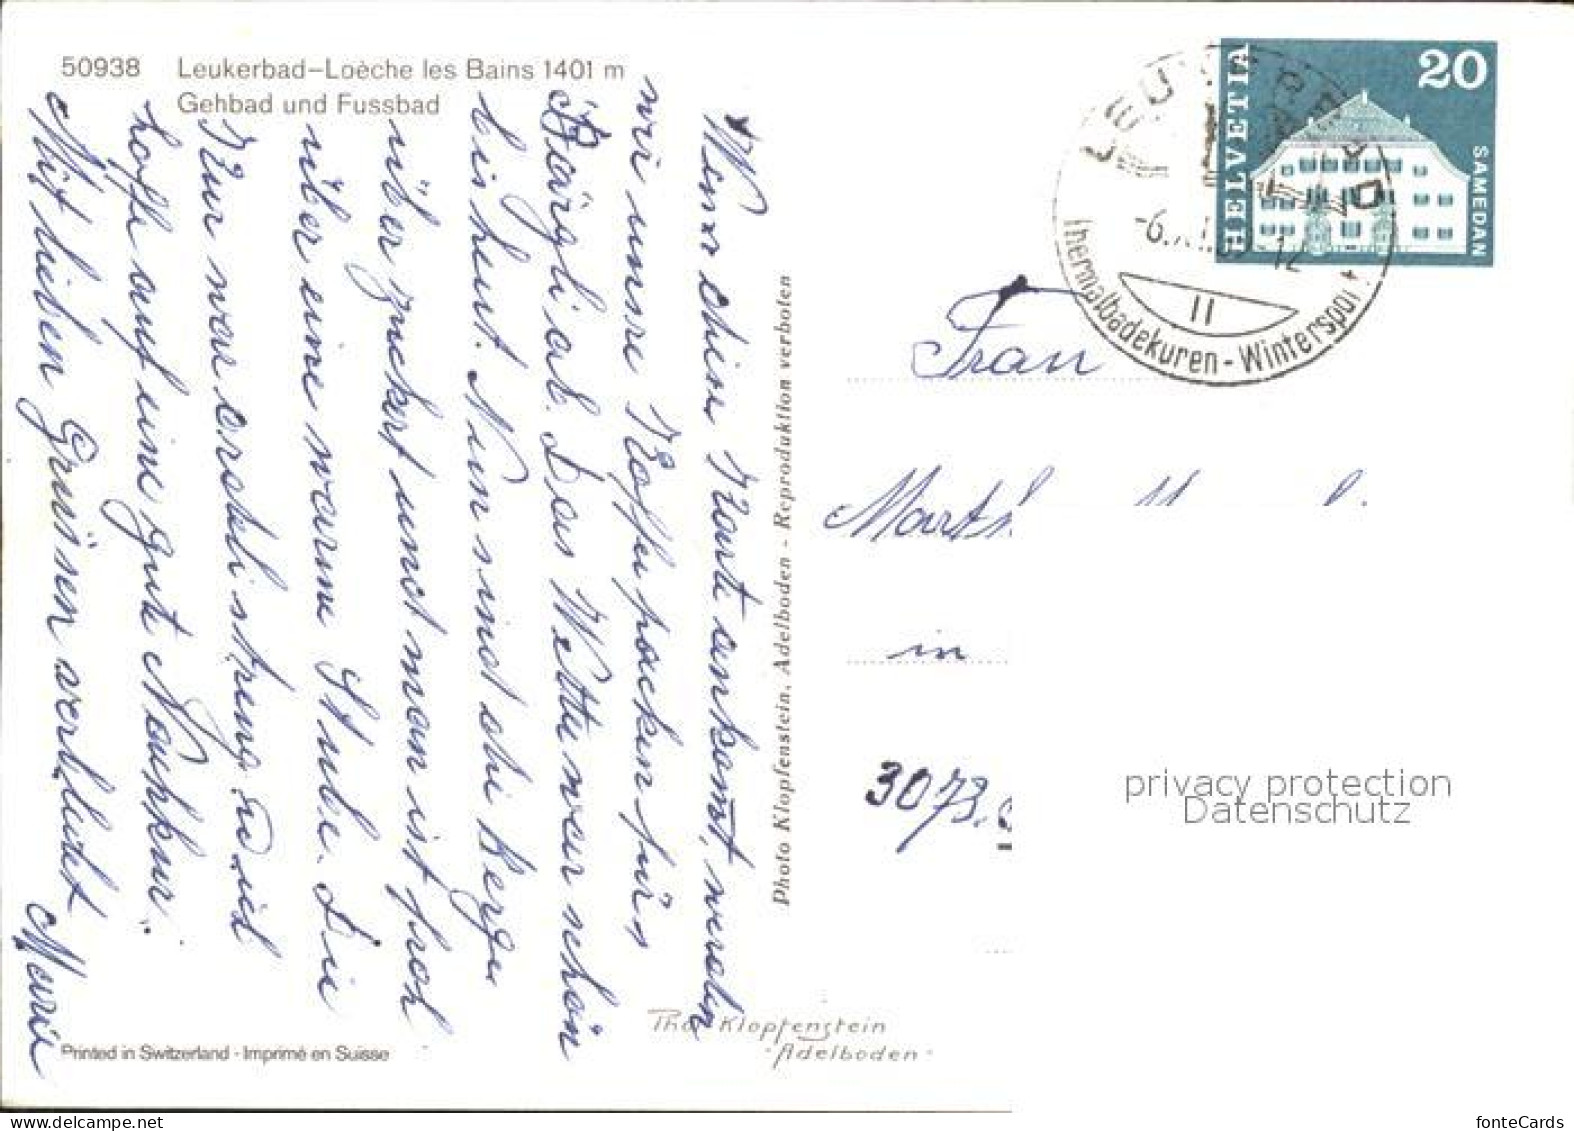 50938 Leukerbad–Loèche les Bains 1401 m
Gehbad und Fussbad
Wenn diese Karte ankomt, werden
wir unsre Koffer packen für's
Bärgli ab. Das Wetter war schön
bis heut. Nun sind die Berge
über zuckert und man ist froh
über eine warme Stube. Die
Kur war orateli streng u. ich
hoffe auf eine gute Nachkur.
Mit lieben Grüssen verbleibt
Marie
Photo Klopfenstein, Adelboden - Reproduktion verboten
Printed in Switzerland - Imprimé en Suisse
Phot Klopfenstein
Adelboden
HELVETIA
20
SAMEDAN
LEUKERBAD
-6.
12
II
Thermalbadekuren - Wintersport
Frau
Marth
in
3073.
privacy protection
Datenschutz
www.delcampe.net
fonteCards